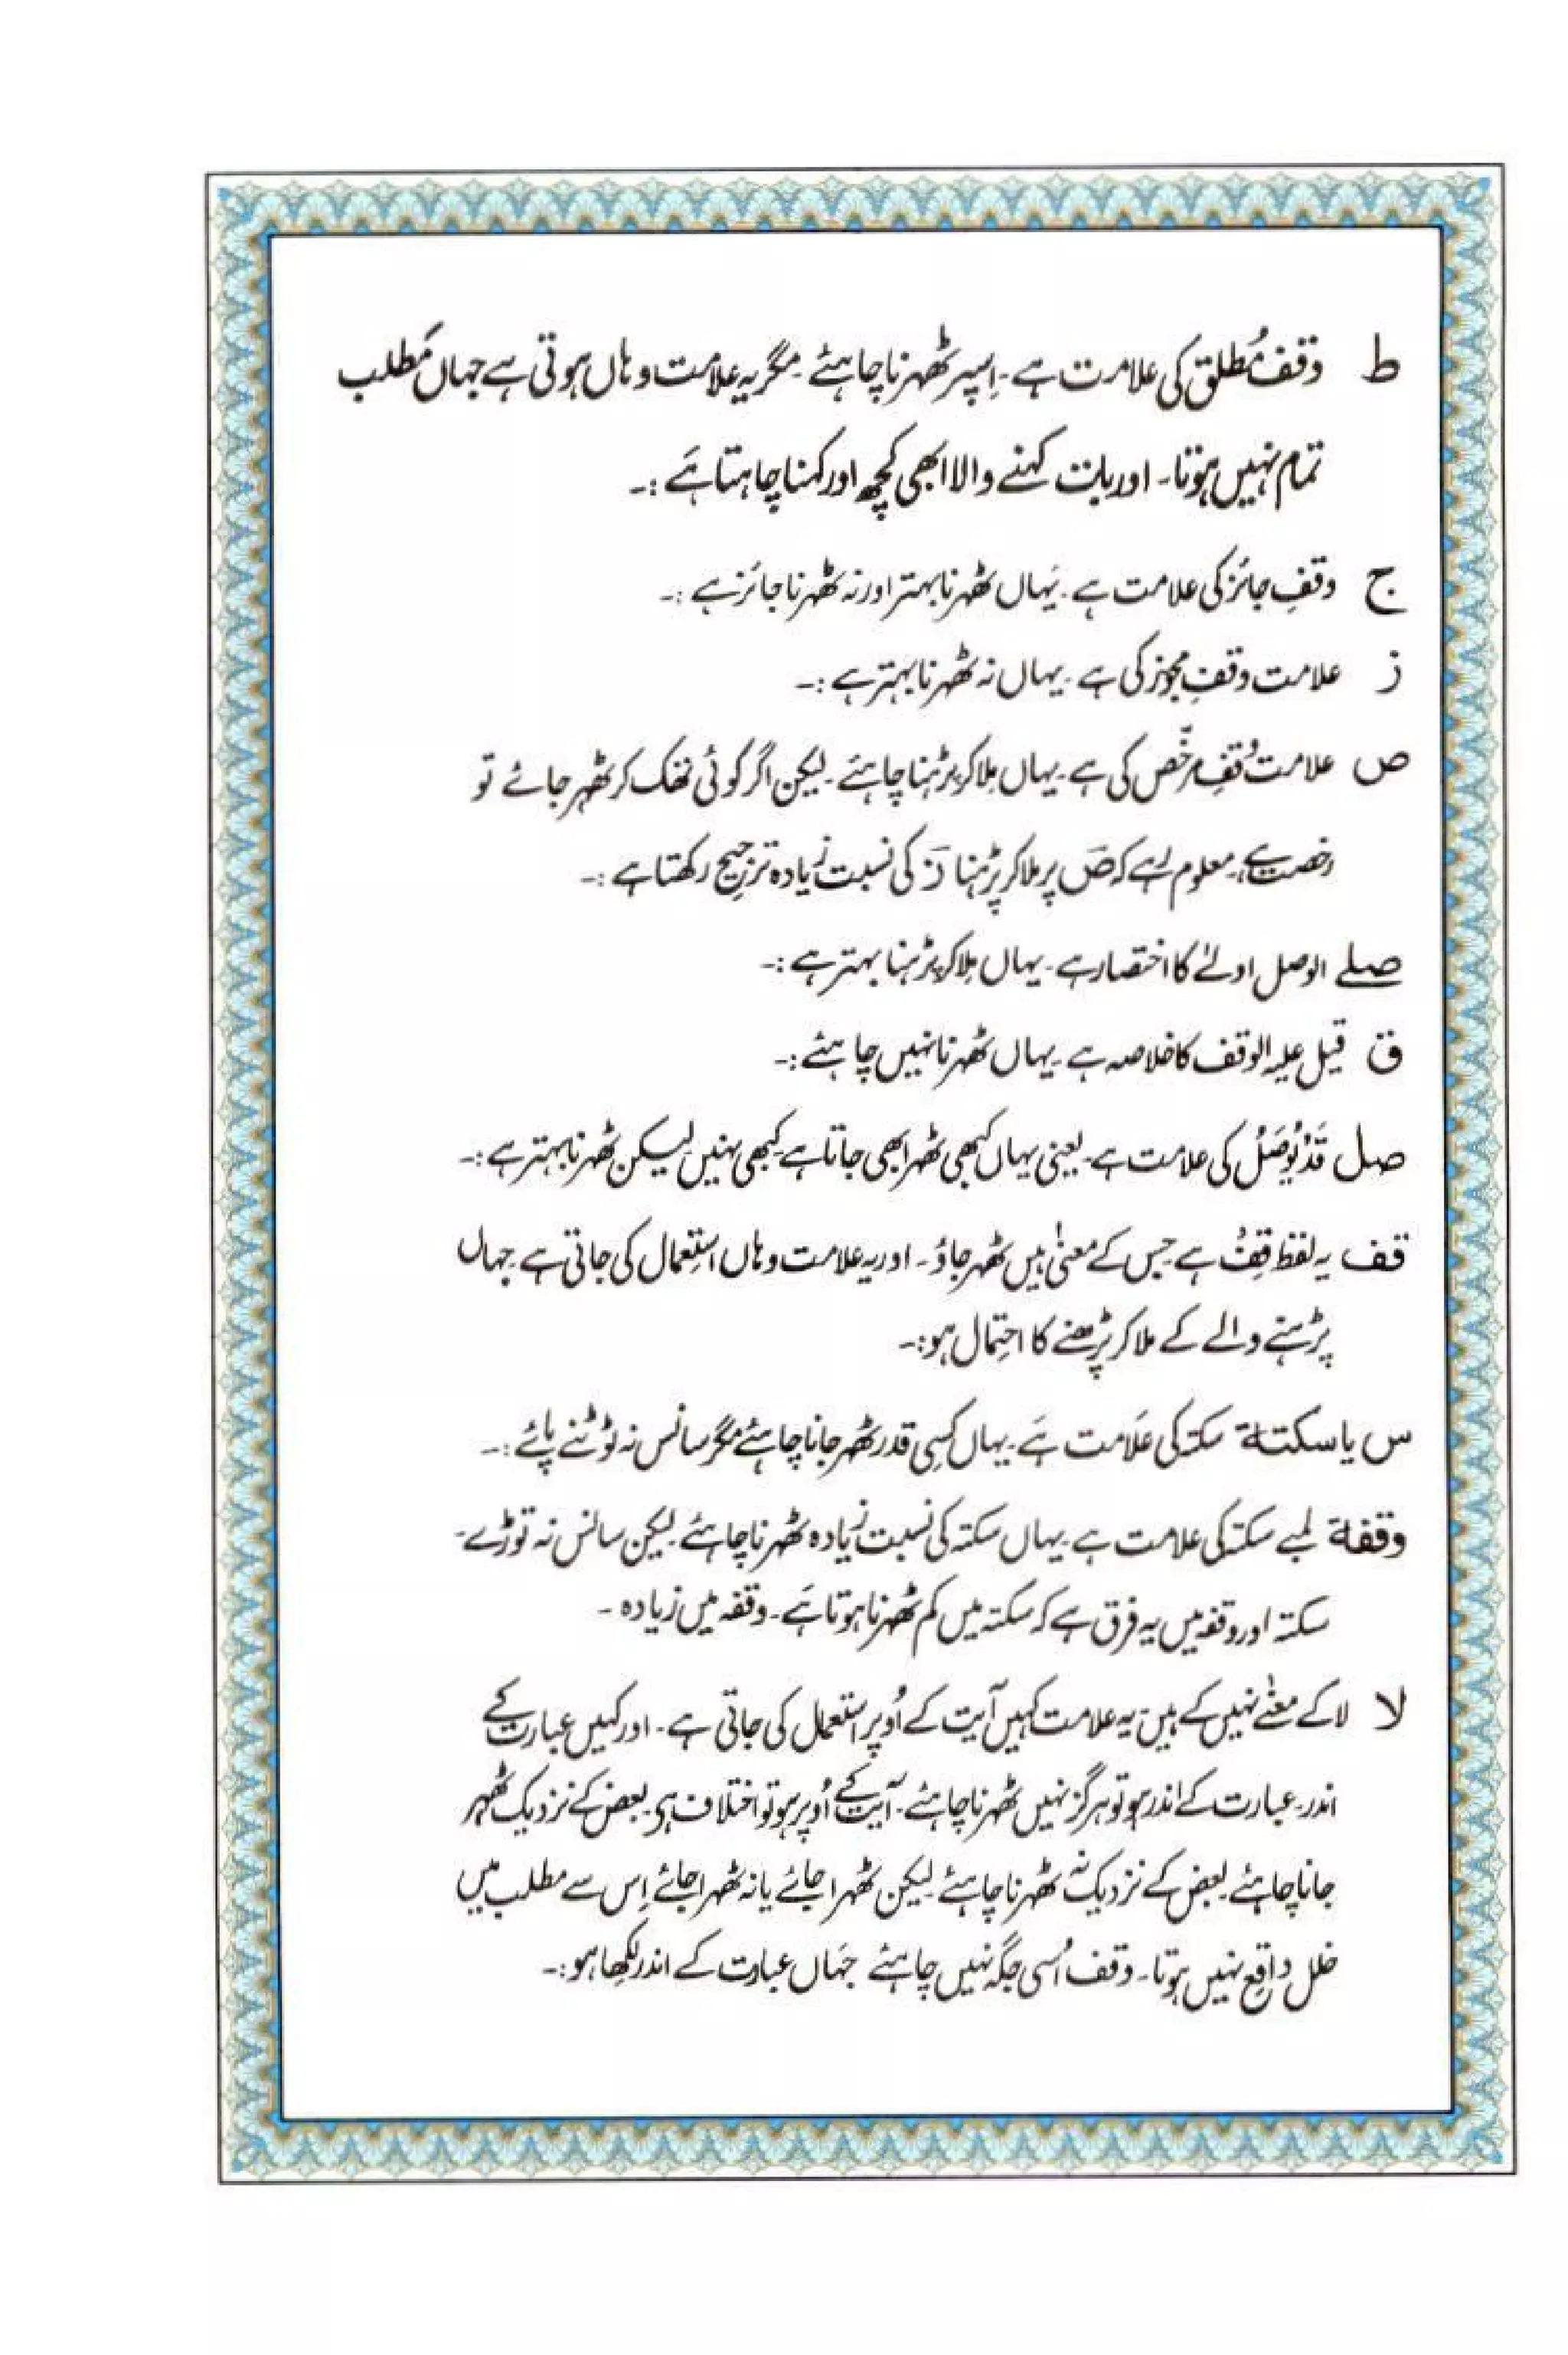 ط وقف مُطلق کی علامت ہے۔ اِسپر ٹھہرنا چاہئے۔ مگر یہ علامت وہاں ہوتی ہے جہاں مَطلب
تمام نہیں ہوتا۔ اور بات کہنے والا ابھی کچھ اور کہنا چاہتا ہَے :۔
ج وقفِ جائز کی علامت ہے۔ یَہاں ٹھہرنا بہتر اور نہ ٹھہرنا جائز ہے :۔
ز علامت وقفِ مجوز کی ہے۔ یہاں نہ ٹھہرنا بہتر ہے :۔
ص علامت وُقفِ مرخّص کی ہے۔ یہاں مِلا کر پڑہنا چاہئے۔ لیکن اگر کوئی تھک کر ٹھہر جائے تو
رخصت ہے۔ معلوم رہے کہ صَ پر ملا کر پڑہنا زَ کی نسبت زیادہ ترجیح رکھتا ہے :۔
صلے الوصل اولےٰ کا اختصار ہے۔ یہاں مِلا کر پڑہنا بہتر ہے :۔
ق قیل علیہ الوقف کا خلاصہ ہے۔ یہاں ٹھہرنا نہیں چاہئے :۔
صل قَدْ یُوصَلُ کی علامت ہے۔ یعنی یہاں کبھی ٹھہرا بھی جاتا ہے کبھی نہیں لیکن ٹھہرنا بہتر ہے :۔
قف یہ لفظ قِفْ ہے جس کے معنیٰ ہیں ٹھہر جاؤ۔ اور یہ علامت وہاں استِعمال کی جاتی ہے جہاں
پڑہنے والے کے ملا کر پڑھنے کا احتِمال ہو :۔
س یا سکتة سکتہ کی علَامت ہَے۔ یہاں کسِی قدر ٹھہر جانا چاہئے مگر سانس نہ ٹوٹنے پائے :۔
وقفة لمبے سکتہ کی علامت ہے۔ یہاں سکتہ کی نسبت زیادہ ٹھہرنا چاہئے لیکن سانس نہ توڑے۔
سکتہ اور وقفہ میں یہ فرق ہے کہ سکتہ میں کم ٹھہرنا ہوتا ہَے۔ وقفہ میں زیادہ ۔
لا لا کے معنےٰ نہیں کے ہیں۔ یہ علامت کہیں آیت کے اُوپر استعمال کی جاتی ہے۔ اور کہیں عبارت کے
اندر۔ عبارت کے اندر ہو تو ہرگز نہیں ٹھہرنا چاہئے۔ آیت کے اُوپر ہو تو اختلاف ہی۔ بعض کے نزدیک ٹھہر
جانا چاہئے بعض کے نزدیک نہ ٹھہرنا چاہئے لیکن ٹھہرا جائے یا نہ ٹھہرا جائے اِس سے مطلب میں
خلل واقع نہیں ہوتا۔ وقف اُسی جگہ نہیں چاہئے جہَاں عبارت کے اندر لکھا ہو :۔